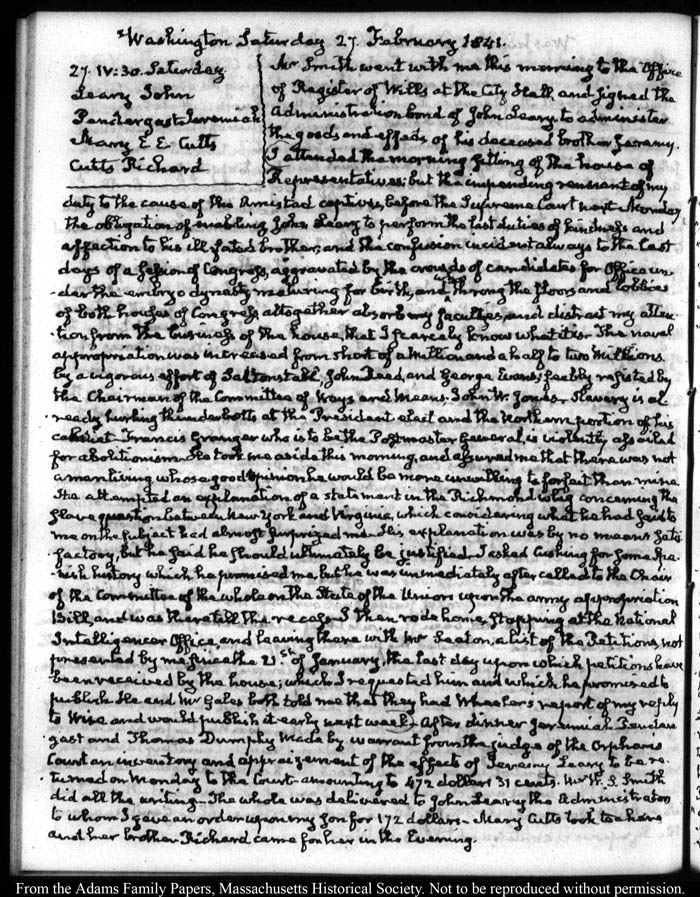 Washington Saturday 27. February 1841.
27. IV:30. Saturday
Leary John
Pendergast Jeremiah
Mary E. E. Cutts
Cutts Richard
Mr Smith went with me this morning to the Office
of Register of Wills at the City Hall and signed the
Administration bond of John Leary to administer
the goods and effects of his deceased brother Jeremy.
I attended the morning sitting of the house of
Representatives; but the impending remnant of my
duty to the cause of the Amistad captives, before the Supreme Court next Monday,
the obligation of enabling John Leary to perform the last duties of kindness and
affection to his ill fated brother, and the confusion incident always to the last
days of a Session of Congress, aggravated by the crowds of candidates for Office un-
der the embryo dynasty maturing for birth, and throng the floors and lobbies
of both houses of Congress altogether absorb my faculties, and distract my atten-
tion from the business of the house, that I scarcely know what it is. The naval
appropriation was increased from short of a Million and a half to two Millions
by a vigorous effort of Saltonstall, John Reed, and George Evans; feebly resisted by
the Chairman of the Committee of Ways and Means. John W. Jones. Slavery is al-
ready hurling thunderbolts at the President elect and the Northern portion of his
cabinet Francis Granger who is to be the Postmaster General, is violently assailed
for abolitionism. He took me aside this morning, and assured me that there was not
a man living whose good opinion he would be more unwilling to forfeit than mine
He attempted an explanation of a statement in the Richmond whig concerning the
slave question between New York and Virginia, which considering what he had said to
me on the subject had almost surprized me. His explanation was by no means satis-
factory, but he said he should ultimately be justified. I asked Cushing for some Spa-
nish history which he promised me, but he was immediately after called to the Chair
of the Committee of the whole on the State of the Union upon the army appropriation
Bill, and was there till the recess. I then rode home, stopping at the National
Intelligencer Office, and leaving there with Mr Seaton, a list of the Petitions, not
presented by me since the 21st of January, the last day upon which petitions have
been received by the house; which I requested him and which he promised to
publish. He and Mr Gales both told me that they had Wheeler's report of my reply
to Wise and would publish it early next week. After dinner Jeremiah Pender-
gast and Thomas Dumphy made by warrant from the judge of the Orphans
Court an inventory and appraizement of the effects of Jeremy Leary to be re-
turned on Monday to the Court amounting to 472 dollars 31 cents. Mr W. S. Smith
did all the writing. The whole was delivered to John Leary the Administrator
to whom I gave an order upon my son for 172 dollars. Mary Cutts took tea here
and her brother Richard came for her in the Evening.
From the Adams Family Papers, Massachusetts Historical Society. Not to be reproduced without permission.